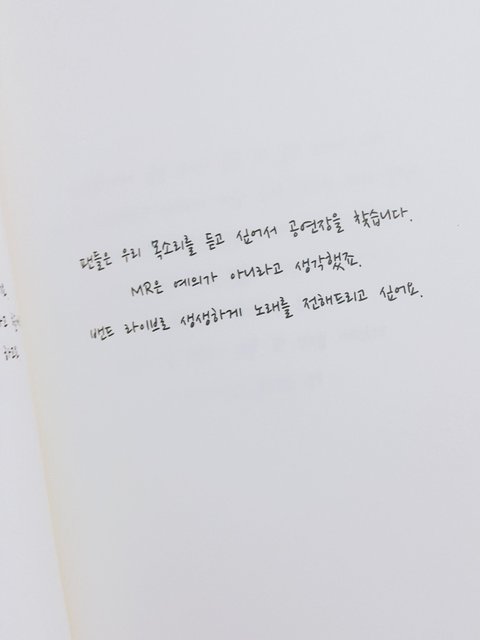 팬들은 우리 목소리를 듣고 싶어서 공연장을 찾습니다.
MR은 예의가 아니라고 생각했죠.
밴드 라이브로 생생하게 노래를 전해드리고 싶어요.